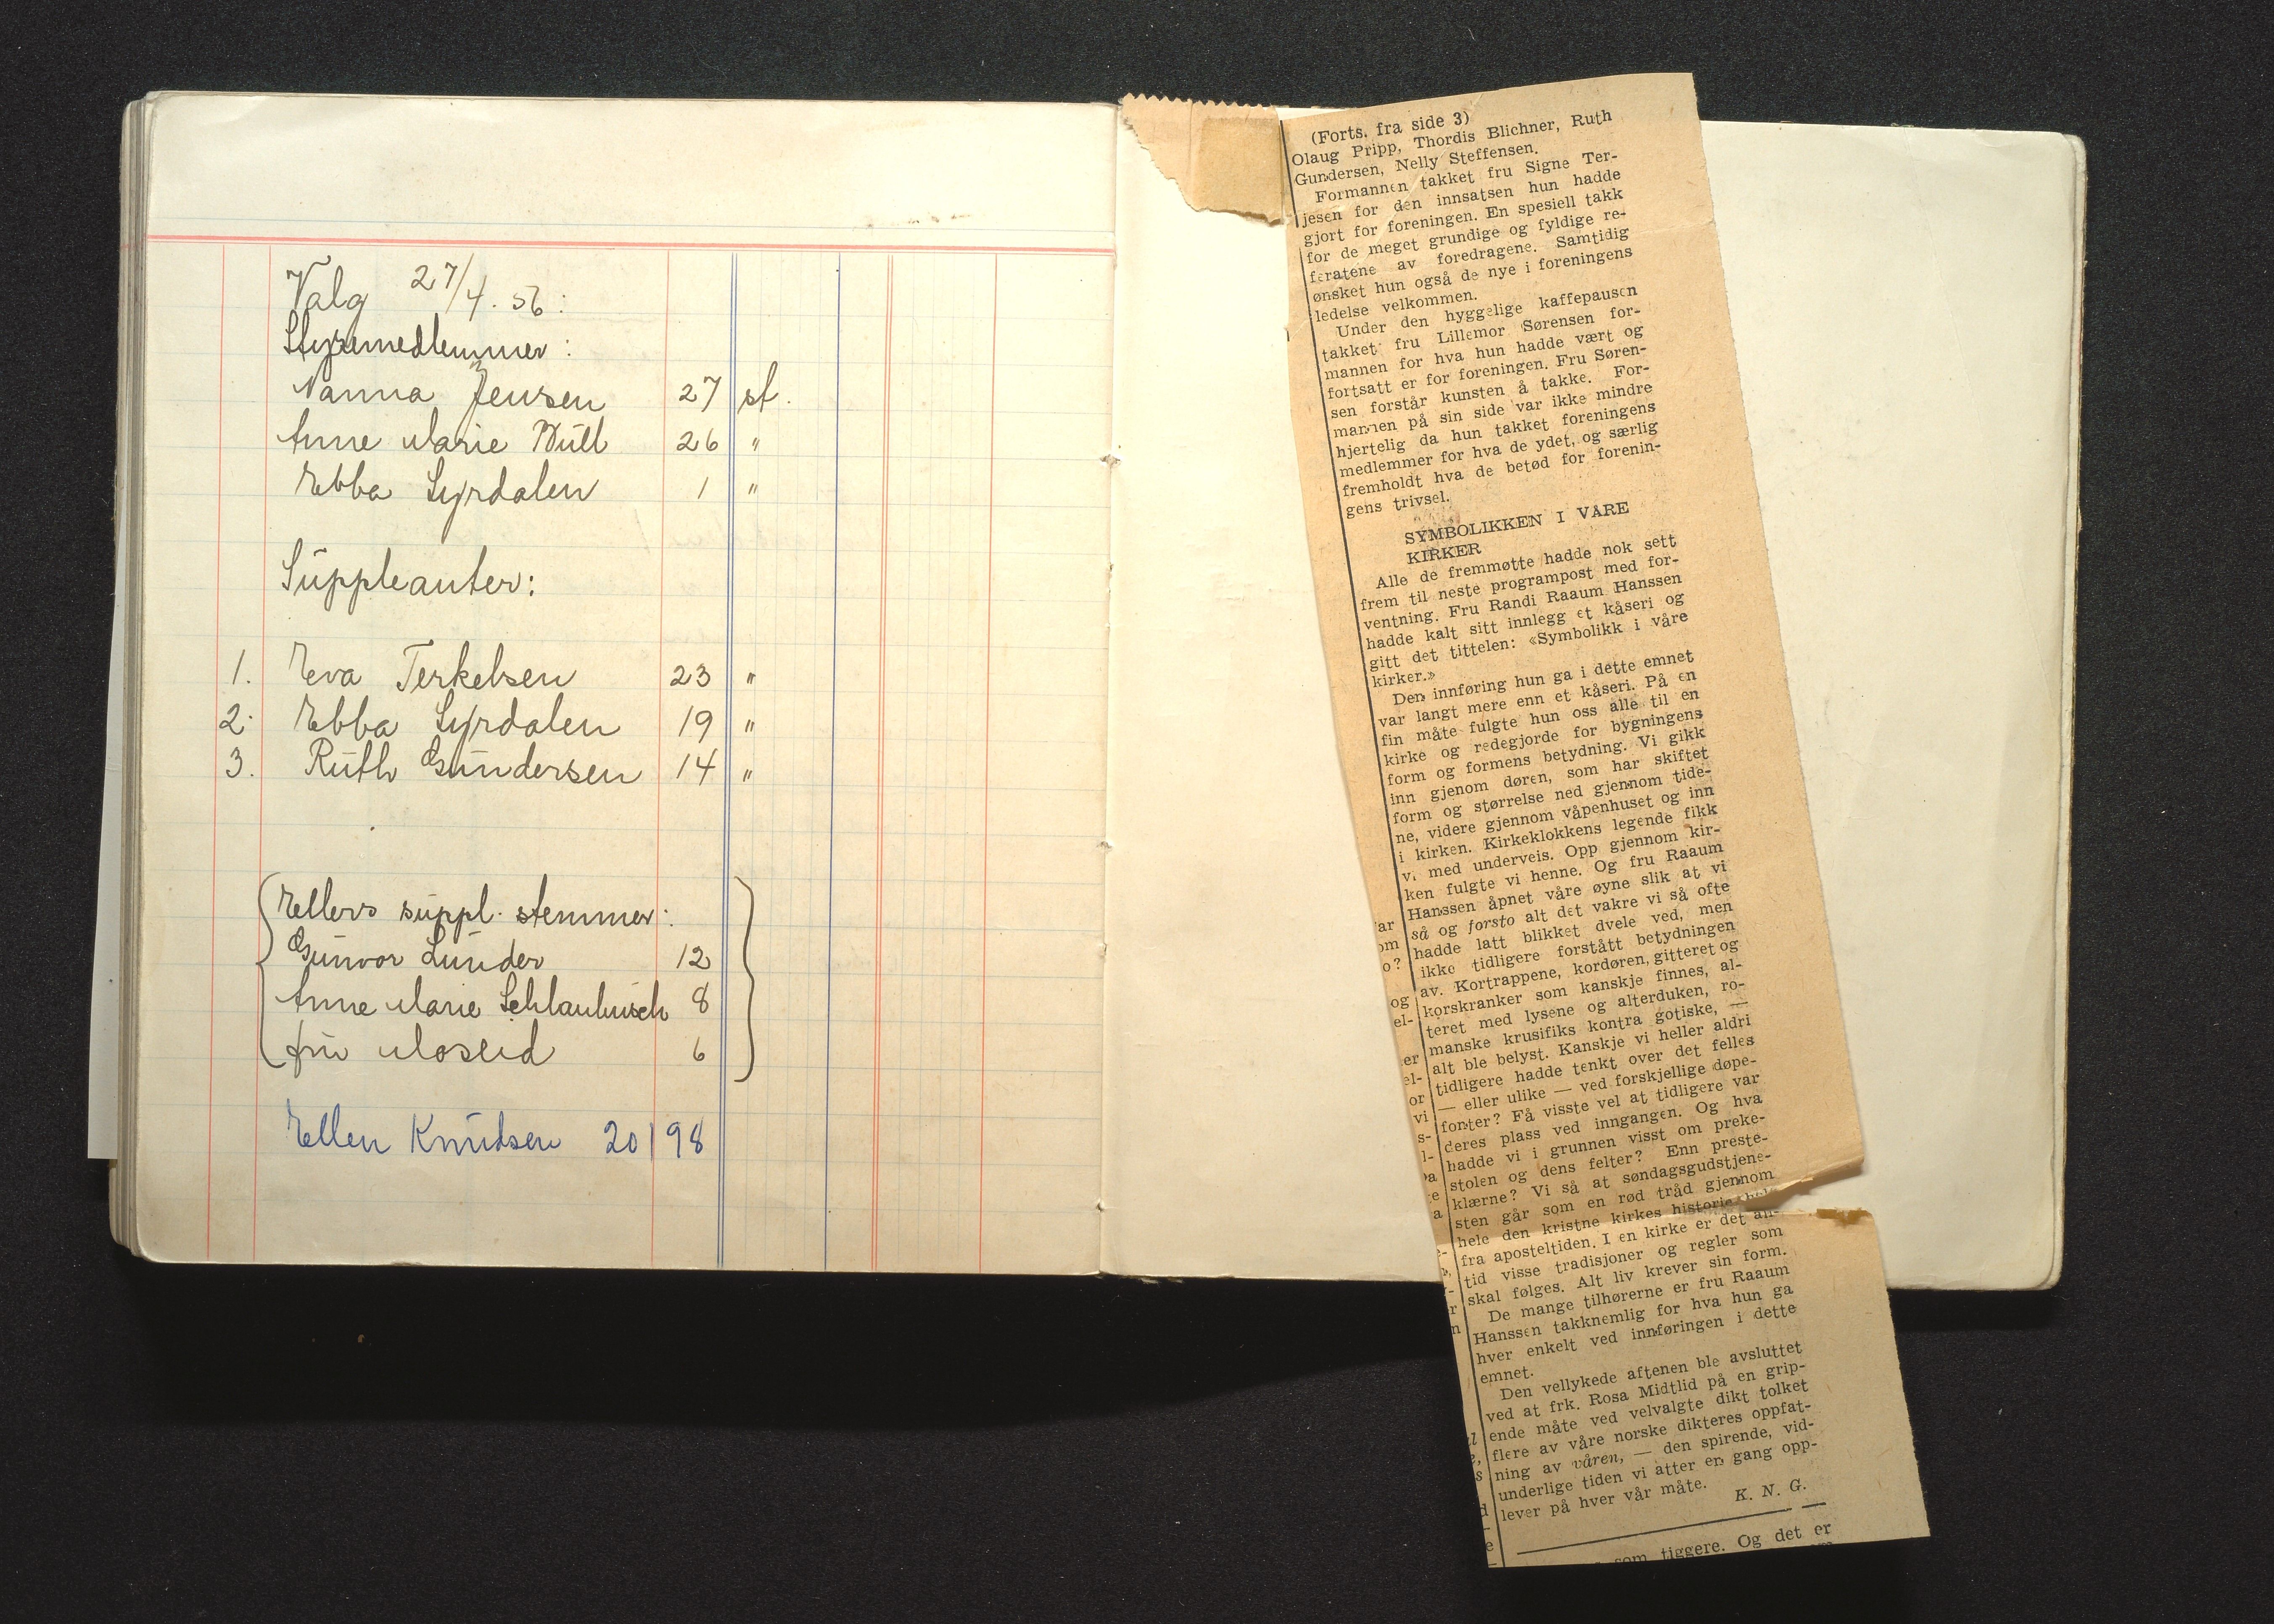 Valg 27/4. 56:
Styremedlemmer:
Nanna Jensen 27 st.
Anne Marie Wull 26 "
Ebba Lyrdalen 1 "
Suppleanter:
1. Eva Terkelsen 23 "
2. Ebba Lyrdalen 19 "
3. Ruth Gundersen 14 "
Ellers suppl. stemmer:
Gunvor Lunder 12
Anne Marie Schlanbusch 8
fru Moseid 6
Ellen Knudsen 20198
(Forts. fra side 3)
Olaug Pripp, Thordis Blichner, Ruth
Gundersen, Nelly Steffensen.
Formannen takket fru Signe Ter-
jesen for den innsatsen hun hadde
gjort for foreningen. En spesiell takk
for de meget grundige og fyldige re-
feratene av foredragene. Samtidig
ønsket hun også de nye i foreningens
ledelse velkommen.
Under den hyggelige kaffepausen
takket fru Lillemor Sørensen for-
mannen for hva hun hadde vært og
fortsatt er for foreningen. Fru Søren-
sen forstår kunsten å takke. For-
mannen på sin side var ikke mindre
hjertelig da hun takket foreningens
medlemmer for hva de ydet, og særlig
fremholdt hva de betød for forenin-
gens trivsel.
SYMBOLIKKEN I VARE
KIRKER
Alle de fremmøtte hadde nok sett
frem til neste programpost med for-
ventning. Fru Randi Raaum Hanssen
hadde kalt sitt innlegg et kåseri og
gitt det tittelen: «Symbolikk i våre
kirker.»
Den innføring hun ga i dette emnet
var langt mere enn et kåseri. På en
fin måte fulgte hun oss alle til en
kirke og redegjorde for bygningens
form og formens betydning. Vi gikk
inn gjenom døren, som har skiftet
form og størrelse ned gjennom tide-
ne, videre gjennom våpenhuset og inn
i kirken. Kirkeklokkens legende fikk
vi med underveis. Opp gjennom kir-
ken fulgte vi henne. Og fru Raaum
Hanssen åpnet våre øyne slik at vi
så og forsto alt det vakre vi så ofte
hadde latt blikket dvele ved, men
ikke tidligere forstått betydningen
av. Kortrappene, kordøren, gitteret og
korskranker som kanskje finnes, al-
teret med lysene og alterduken, ro-
manske krusifiks kontra gotiske, —
alt ble belyst. Kanskje vi heller aldri
tidligere hadde tenkt over det felles
— eller ulike — ved forskjellige døpe-
fonter? Få visste vel at tidligere var
deres plass ved inngangen. Og hva
hadde vi i grunnen visst om preke-
stolen og dens felter? Enn preste-
klærne? Vi så at søndagsgudstjene-
sten går som en rød tråd gjennom
hele den kristne kirkes historie
fra aposteltiden. I en kirke er det all-
tid visse tradisjoner og regler som
skal følges. Alt liv krever sin form.
De mange tilhørerne er fru Raaum
Hanssen takknemlig for hva hun ga
hver enkelt ved innføringen i dette
emnet.
Den vellykede aftenen ble avsluttet
ved at frk. Rosa Midtlid på en grip-
ende måte ved velvalgte dikt tolket
flere av våre norske dikteres oppfat-
ning av våren, — den spirende, vid-
underlige tiden vi atter en gang opp-
lever på hver vår måte.
K. N. G.
som tiggere. Og det er